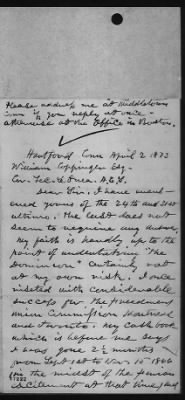 Please address me at Middletown
Conn if you reply at once -
otherwise at the Office in Boston.
Hartford Conn April 2 1873
William Coppinger Esq.
Cor. Sec. & Treas. A.C.S.
Dear Sir, I have received
yours of the 29th and 31st
ultimo. The last does not
seem to require any answer.
My faith is hardly up to the
point of undertaking the
at my own risk. I once
visited with considerable
success for the Freedmen
Montreal
and Toronto. My cash book
which is before me says
I was gone 2½ months -
from Sept 1st to Nov 15 1866
in the midst of the Fenian
excitement at that time, and